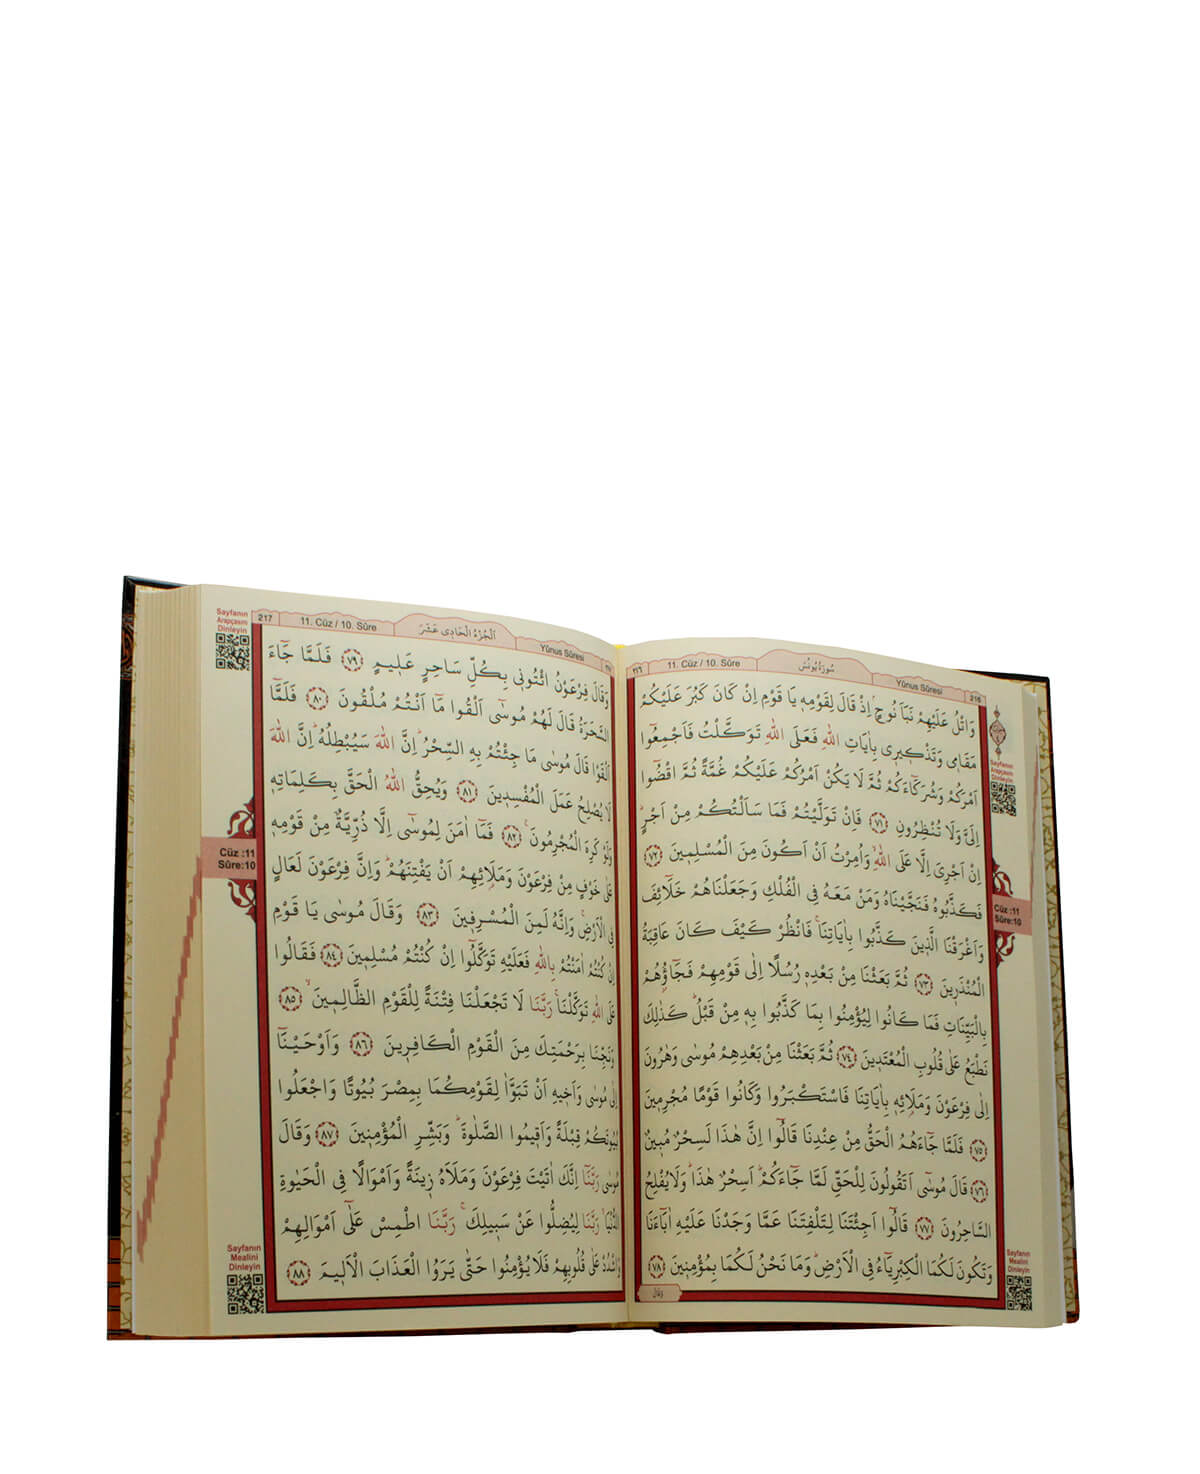 216
Yûnus Sûresi
سُورَةُ يُونُسَ
11. Cüz / 10. Sûre
٢١٦
وَاتْلُ عَلَيْهِمْ نَبَاَ نُوحٍۢ اِذْ قَالَ لِقَوْمِه۪ يَا قَوْمِ اِنْ كَانَ كَبُرَ عَلَيْكُمْ
مَقَام۪ي وَتَذْك۪ير۪ي بِاٰيَاتِ اللّٰهِ فَعَلَى اللّٰهِ تَوَكَّلْتُ فَاَجْمِعُٓوا
اَمْرَكُمْ وَشُرَكَٓاءَكُمْ ثُمَّ لَا يَكُنْ اَمْرُكُمْ عَلَيْكُمْ غُمَّةً ثُمَّ اقْضُٓوا
اِلَيَّ وَلَا تُنْظِرُونِ ﴿٧١﴾ فَاِنْ تَوَلَّيْتُمْ فَمَا سَاَلْتُكُمْ مِنْ اَجْرٍۜ
اِنْ اَجْرِيَ اِلَّا عَلَى اللّٰهِۙ وَاُمِرْتُ اَنْ اَكُونَ مِنَ الْمُسْلِم۪ينَ ﴿٧٢﴾
فَكَذَّبُوهُ فَنَجَّيْنَاهُ وَمَنْ مَعَهُ فِي الْفُلْكِ وَجَعَلْنَاهُمْ خَلَٓائِفَ
وَاَغْرَقْنَا الَّذ۪ينَ كَذَّبُوا بِاٰيَاتِنَاۚ فَانْظُرْ كَيْفَ كَانَ عَاقِبَةُ
الْمُنْذَر۪ينَ ﴿٧٣﴾ ثُمَّ بَعَثْنَا مِنْ بَعْدِه۪ رُسُلًا اِلٰى قَوْمِهِمْ فَجَٓاؤُ۫هُمْ
بِالْبَيِّنَاتِ فَمَا كَانُوا لِيُؤْمِنُوا بِمَا كَذَّبُوا بِه۪ مِنْ قَبْلُۜ كَذٰلِكَ
نَطْبَعُ عَلٰى قُلُوبِ الْمُعْتَد۪ينَ ﴿٧٤﴾ ثُمَّ بَعَثْنَا مِنْ بَعْدِهِمْ مُوسٰى وَهٰرُونَ
اِلٰى فِرْعَوْنَ وَمَلَا۬ئِه۪ بِاٰيَاتِنَا فَاسْتَكْبَرُوا وَكَانُوا قَوْمًا مُجْرِم۪ينَ
﴿٧٥﴾ فَلَمَّا جَٓاءَهُمُ الْحَقُّ مِنْ عِنْدِنَا قَالُٓوا اِنَّ هٰذَا لَسِحْرٌ مُب۪ينٌ
﴿٧٦﴾ قَالَ مُوسٰٓى اَتَقُولُونَ لِلْحَقِّ لَمَّا جَٓاءَكُمْۜ اَسِحْرٌ هٰذَاۜ وَلَا يُفْلِحُ
السَّاحِرُونَ ﴿٧٧﴾ قَالُٓوا اَجِئْتَنَا لِتَلْفِتَنَا عَمَّا وَجَدْنَا عَلَيْهِ اٰبَٓاءَنَا
وَتَكُونَ لَكُمَا الْكِبْرِيَٓاءُ فِي الْاَرْضِۜ وَمَا نَحْنُ لَكُمَا بِمُؤْمِن۪ينَ ﴿٧٨﴾
وَقَالَ
Sayfanın
Arapçasını
Dinleyin
Cüz :11
Sûre:10
Sayfanın
Mealini
Dinleyin
Yûnus Sûresi
اَلْجُزْءُ الْحَاد۪ي عَشَرَ
11. Cüz / 10. Sûre
217
وَقَالَ فِرْعَوْنُ ائْتُون۪ي بِكُلِّ سَاحِرٍ عَل۪يمٍ ﴿٧٩﴾ فَلَمَّا جَٓاءَ
السَّحَرَةُ قَالَ لَهُمْ مُوسٰٓى اَلْقُوا مَٓا اَنْتُمْ مُلْقُونَ ﴿٨٠﴾ فَلَمَّٓا
اَلْقَوْا قَالَ مُوسٰى مَا جِئْتُمْ بِهِ السِّحْرُۜ اِنَّ اللّٰهَ سَيُبْطِلُهُۜ اِنَّ اللّٰهَ
لَا يُصْلِحُ عَمَلَ الْمُفْسِد۪ينَ ﴿٨١﴾ وَيُحِقُّ اللّٰهُ الْحَقَّ بِكَلِمَاتِه۪
وَلَوْ كَرِهَ الْمُجْرِمُونَ۟ ﴿٨٢﴾ فَمَٓا اٰمَنَ لِمُوسٰٓى اِلَّا ذُرِّيَّةٌ مِنْ قَوْمِه۪
عَلٰى خَوْفٍ مِنْ فِرْعَوْنَ وَمَلَا۬ئِهِمْ اَنْ يَفْتِنَهُمْۜ وَاِنَّ فِرْعَوْنَ لَعَالٍ
فِي الْاَرْضِۚ وَاِنَّهُ لَمِنَ الْمُسْرِف۪ينَ ﴿٨٣﴾ وَقَالَ مُوسٰى يَا قَوْمِ
اِنْ كُنْتُمْ اٰمَنْتُمْ بِاللّٰهِ فَعَلَيْهِ تَوَكَّلُٓوا اِنْ كُنْتُمْ مُسْلِم۪ينَ ﴿٨٤﴾ فَقَالُوا
عَلَى اللّٰهِ تَوَكَّلْنَاۚ رَبَّنَا لَا تَجْعَلْنَا فِتْنَةً لِلْقَوْمِ الظَّالِم۪ينَۙ ﴿٨٥﴾
وَنَجِّنَا بِرَحْمَتِكَ مِنَ الْقَوْمِ الْكَافِر۪ينَ ﴿٨٦﴾ وَاَوْحَيْنَٓا
اِلٰى مُوسٰى وَاَخ۪يهِ اَنْ تَبَوَّاٰ لِقَوْمِكُمَا بِمِصْرَ بُيُوتًا وَاجْعَلُوا
بُيُوتَكُمْ قِبْلَةً وَاَق۪يمُوا الصَّلٰوةَۜ وَبَشِّرِ الْمُؤْمِن۪ينَ ﴿٨٧﴾ وَقَالَ
مُوسٰى رَبَّنَٓا اِنَّكَ اٰتَيْتَ فِرْعَوْنَ وَمَلَاَهُ ز۪ينَةً وَاَمْوَالًا فِي الْحَيٰوةِ
الدُّنْيَاۙ رَبَّنَا لِيُضِلُّوا عَنْ سَب۪يلِكَۚ رَبَّنَا اطْمِسْ عَلٰٓى اَمْوَالِهِمْ
وَاشْدُدْ عَلٰى قُلُوبِهِمْ فَلَا يُؤْمِنُوا حَتّٰى يَرَوُا الْعَذَابَ الْاَل۪يمَ ﴿٨٨﴾
Sayfanın
Arapçasını
Dinleyin
Cüz :11
Sûre:10
Sayfanın
Mealini
Dinleyin